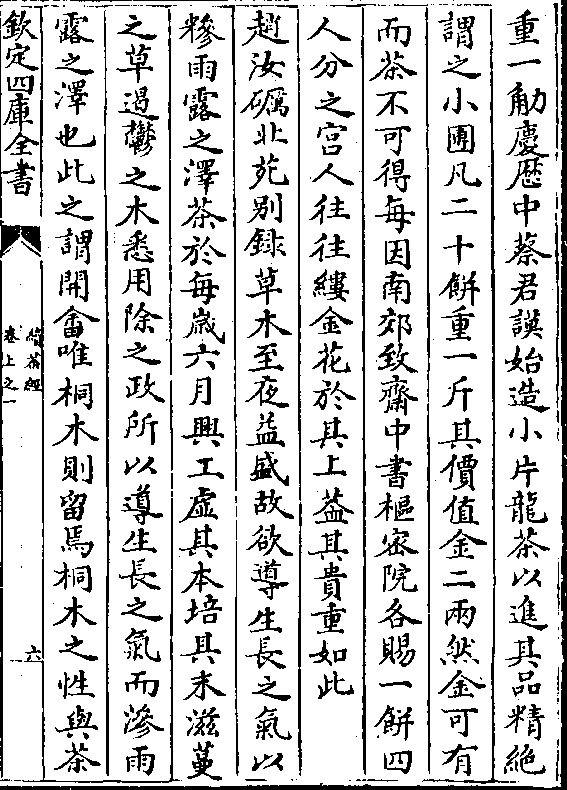 重一觔慶厯中蔡君謨始造小片龍茶以進其品精絶
謂之小團凡二十餅重一斤其價值金二兩然金可有
而茶不可得每因南郊致齋中書樞密院各賜一餅四
人分之宫人往往縷金花於其上葢其貴重如此
趙汝礪北苑别錄草木至夜益盛故欲導生長之氣以
糝雨露之澤茶於每歲六月興工虚其本培其末滋蔓
之草遏鬱之木悉用除之政所以導生長之氣而滲雨
露之澤也此之謂開畬唯桐木則留焉桐木之性與茶
欽定四庫全書
續茶經
卷上之一
六